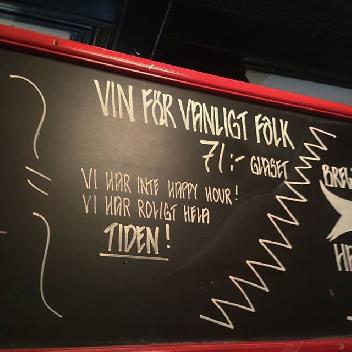 VIN FÖR VANLIGT FOLK
71:- GLASET
VI HAR INTE HAPPY HOUR!
VI HAR ROLIGT HELA
TIDEN!